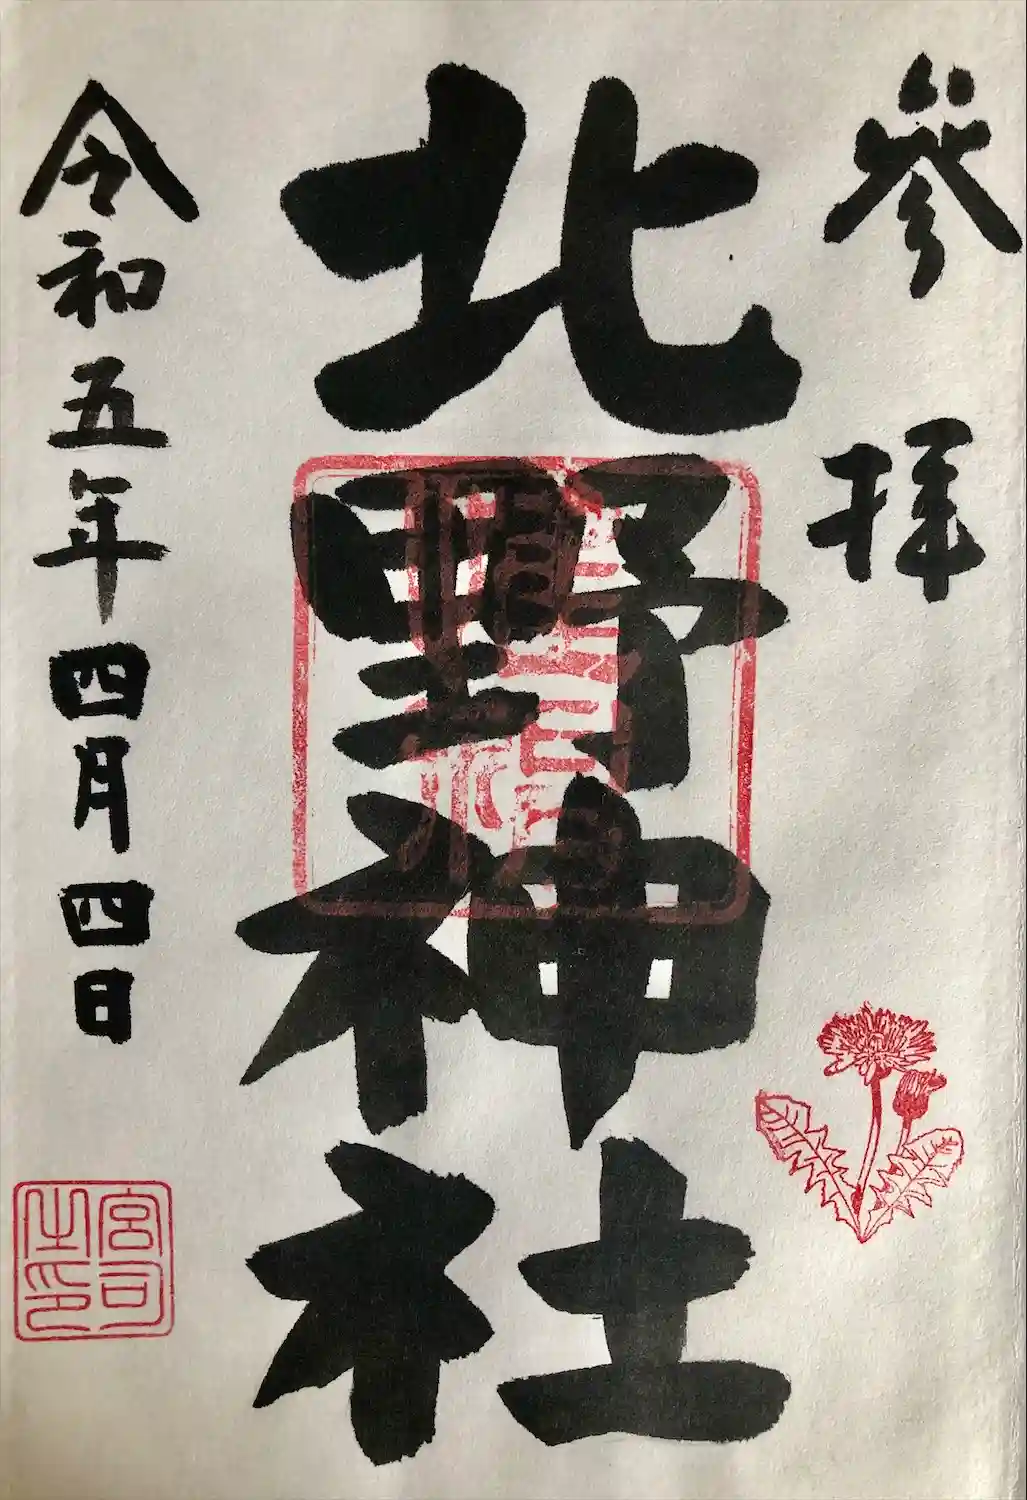 參拝
北野神社
令和五年四月四日
宮司
之印